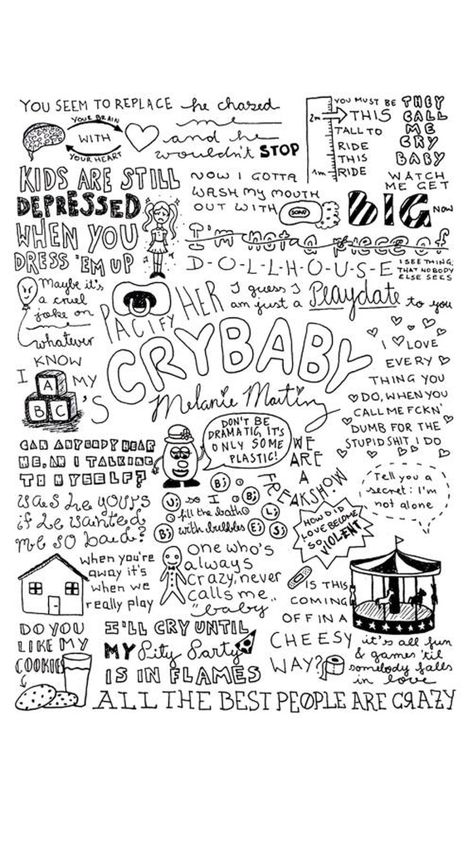 YOU SEEM TO REPLACE
YOUR BRAIN
WITH
YOUR HEART
he chased
me
and he
wouldn't STOP
2m
1m
YOU MUST BE
THIS
TALL TO
RIDE
THIS
RIDE
THEY
CALL
ME
CRY
BABY
KIDS ARE STILL
DEPRESSED
WHEN YOU
DRESS 'EM UP
NOW I GOTTA
WASH MY MOUTH
OUT WITH
SOAP
WATCH
ME GET
BIG NOW
I'm not a piece of
D-O-L-L-H-O-U-S-E
I SEE THINGS
THAT NOBODY
ELSE SEES
Maybe it's
a cruel
joke on
me
whatever
PACIFY HER
I guess I
am just a Playdate to you
CRYBABY
Melanie Martinez
I KNOW MY
A
B C
'S
I LOVE
EVERY
THING YOU
DO, WHEN YOU
CALL ME FCKN'
DUMB FOR THE
STUPID SHIT I DO
CAN ANYBODY HEAR
ME, AM I TALKING
TO MYSELF?
DON'T BE
DRAMATIC, IT'S
ONLY SOME
PLASTIC!
WE
ARE
A
FREAKSHOW
Tell you a
secret: I'm
not alone
was he yours
if he wanted
me so bad?
so I
fill the bath
with bubbles
HOW DID
LOVE BECOME
SO
VIOLENT
when you're
away it's
when we
really play
one who's
always
crazy, never
calls me
"baby"
IS THIS
COMING
OFF IN A
CHEESY
WAY?
it's all fun
& games 'til
somebody falls
in love
DO YOU
LIKE MY
COOKIES
I'LL CRY UNTIL
MY Pity Party
IS IN FLAMES
ALL THE BEST PEOPLE ARE CRAZY